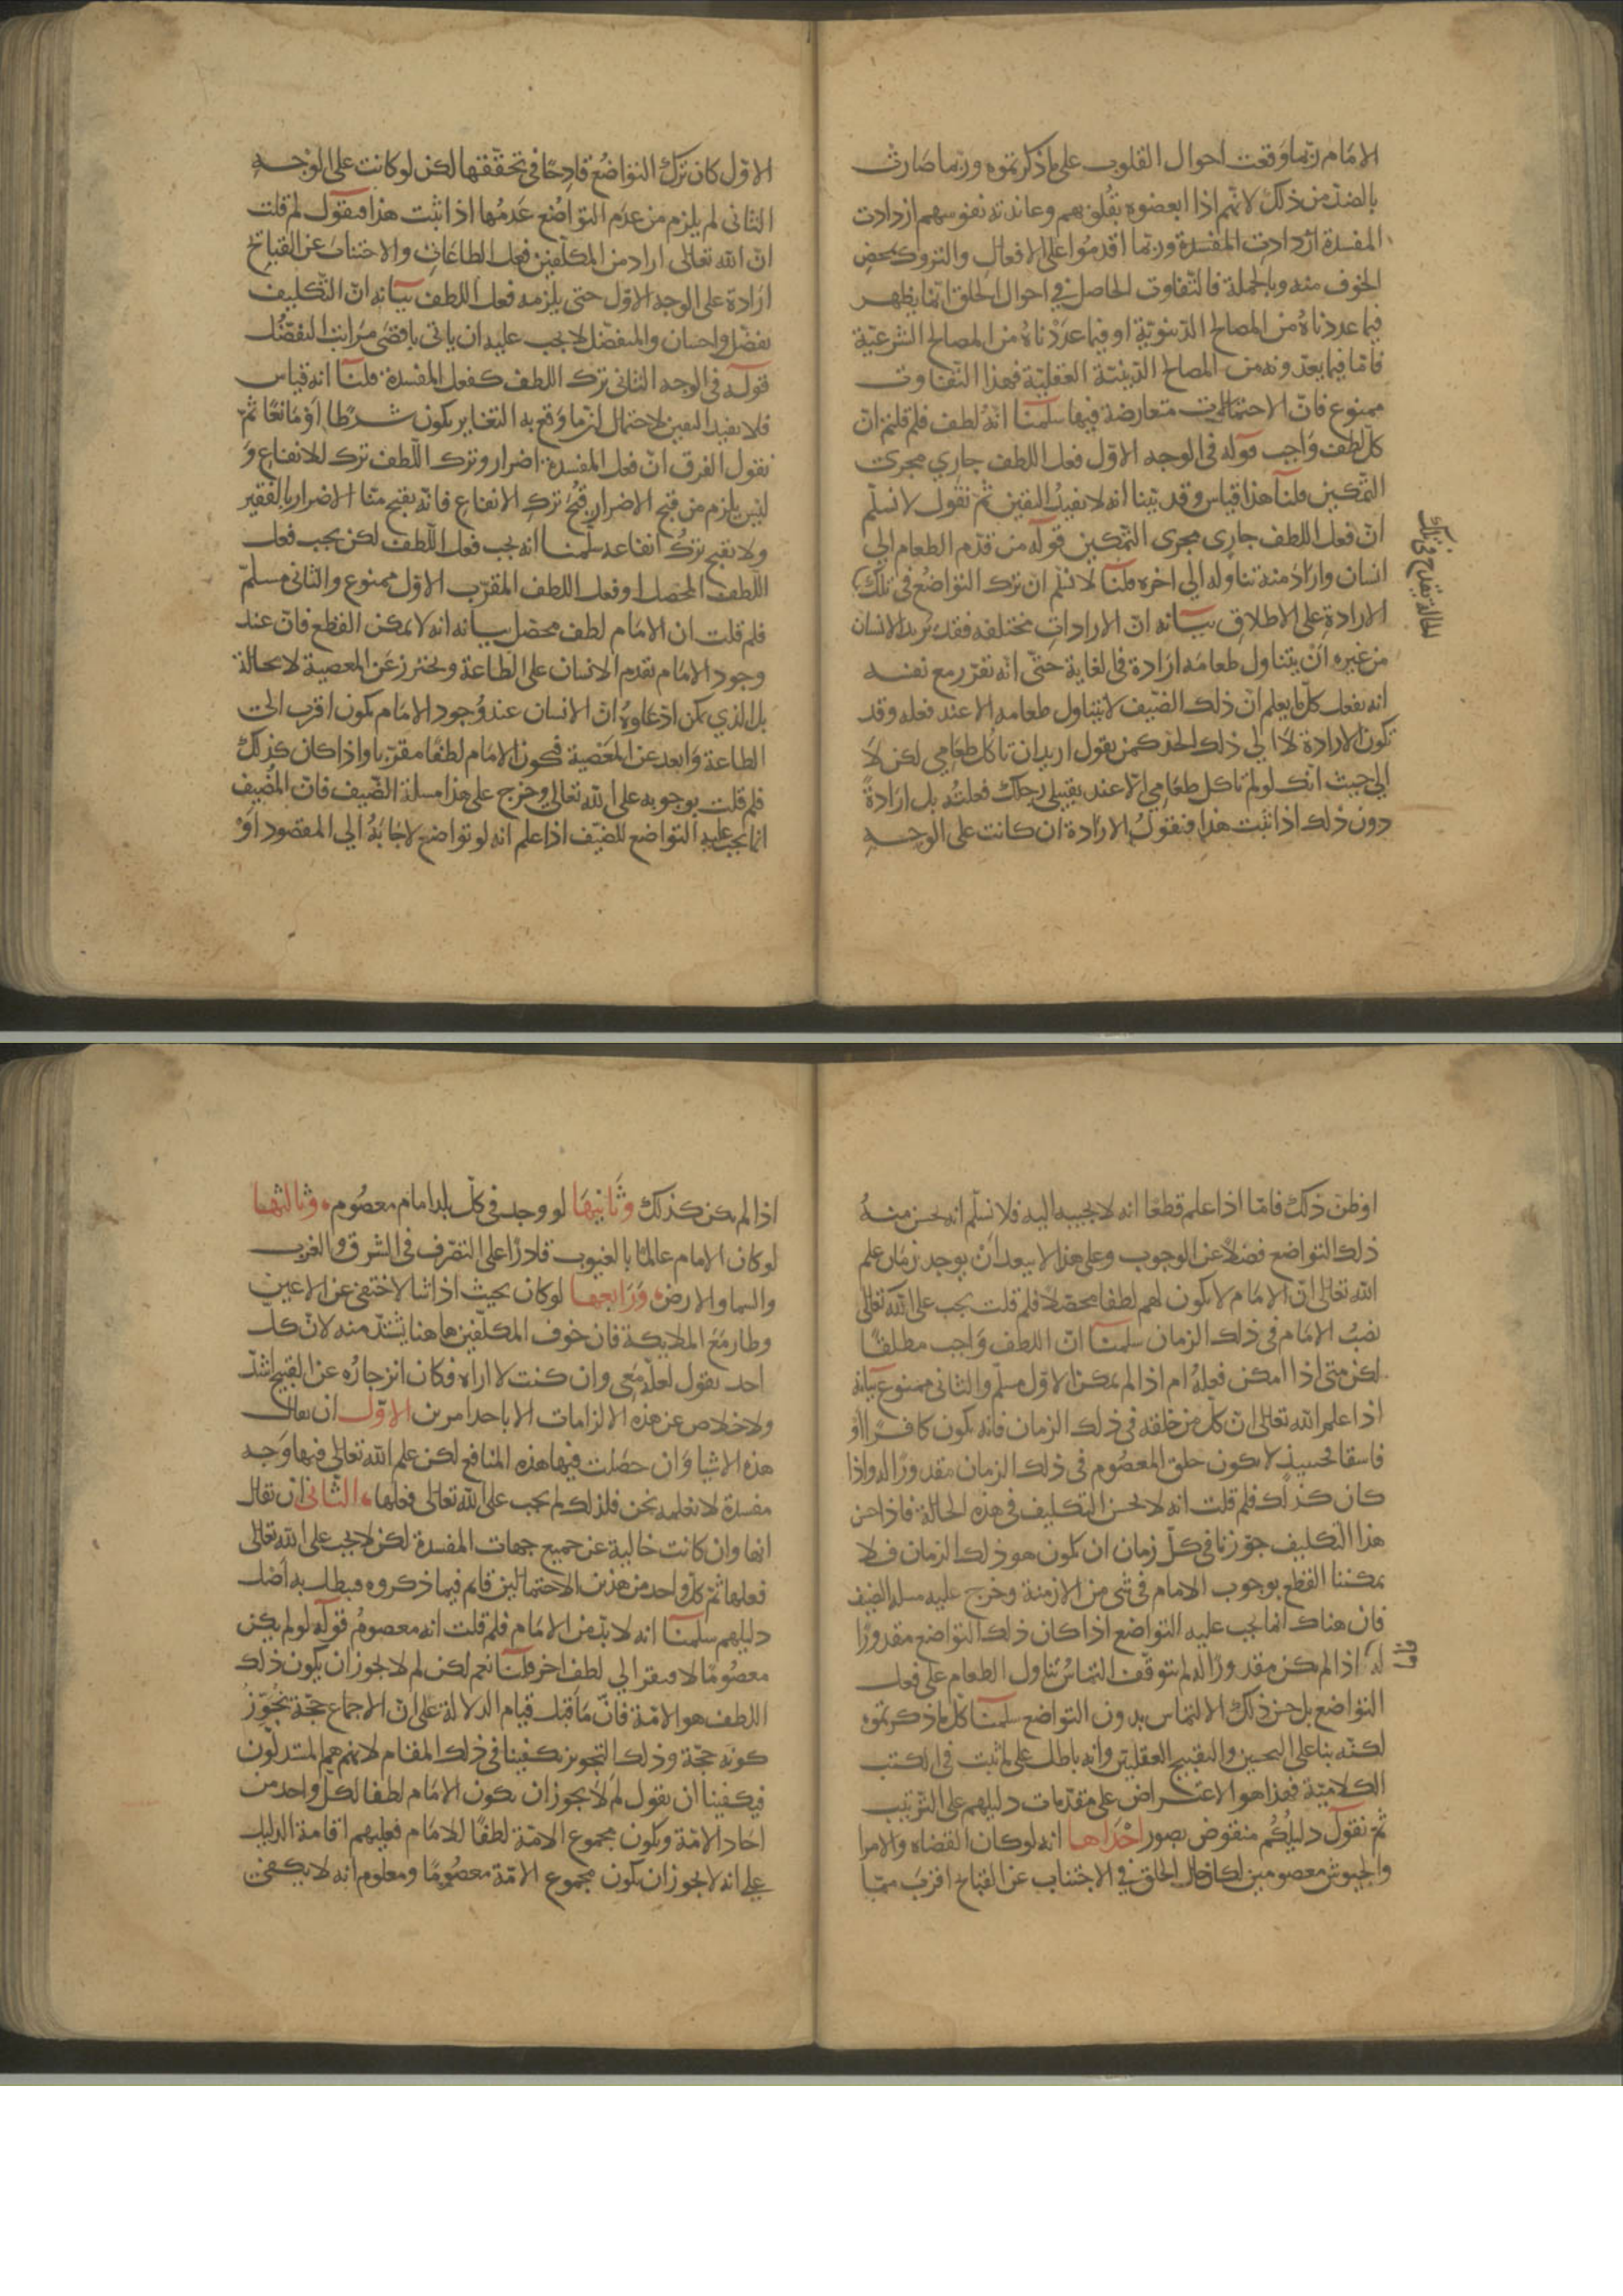 الامام ربما وقعت احوال القلوب على ما ذكرتموه وربما صارت
بالضد من ذلك لانهم اذا ابغضوه بقلوبهم وعاندته نفوسهم ازدادت
المفسدة ازدادت المفسدة وربما اقدموا على الافعال والتروك لمحض
الخوف منه وبالجملة فالتفاوت الحاصل في احوال الخلق انما يظهر
فيما عددناه من المصالح الدنيوية او فيما عددناه من المصالح الشرعية
فاما فيما يعدونه من المصالح الدينية العقلية فهذا التفاوت
ممنوع فان الاحتمالات متعارضة فيها سلمنا انه لطف فلم قلتم ان
كل لطف واجب قوله في الوجه الاول فعل اللطف جاري مجرى
التمكين قلنا هذا قياس وقد بينا انه لا يفيد اليقين ثم نقول لا نسلم
ان فعل اللطف جاري مجرى التمكين قوله من قدم الطعام الي
انسان واراد منه تناوله الي اخره قلنا لا نسلم ان ترك التواضع في تلك
الارادة على الاطلاق بيانه ان الارادات مختلفه فقد يريد الانسان
من غيره ان يتناول طعامه ارادة في الغاية حتى انه تقرر مع نفسه
انه يفعل كل ما يعلم ان ذلك الضيف لا يتناول طعامه الا عند فعله وقد
تكون الارادة لا الي ذلك الحد كمن يقول اريد ان تاكل طعامي لكن لا
الي حيث انك لو لم تاكل طعامي الا عند تقبيلي رجلك فعلته بل ارادة
دون ذلك اذا ثبت هذا فنقول الارادة ان كانت على الوجه
الحالة يقدح في تلك
الاول كان ترك التواضع قادحا في تحققها لكن لو كانت على الوجه
الثاني لم يلزم من عدم التواضع عدمها اذا ثبت هذا فنقول لم قلت
ان الله تعالى اراد من المكلفين فعل الطاعات والاجتناب عن القبائح
ارادة على الوجه الاول حتى يلزمه فعل اللطف بيانه ان التكليف
تفضل واحسان والمتفضل لا يجب عليه ان ياتى باقصى مراتب التفضل
قوله في الوجه الثاني ترك اللطف كفعل المفسدة قلنا انه قياس
فلا يفيد اليقين لاحتمال ان ما وقع به التغاير يكون شرطا او مانعا ثم
نقول الفرق ان فعل المفسدة اضرار وترك اللطف ترك للانفاع و
ليس يلزم من قبح الاضرار قبح ترك الانفاع فانه يقبح منا الاضرار بالفقير
ولا يقبح ترك انفاعه سلمنا انه يجب فعل اللطف لكن يجب فعل
اللطف المحصل او فعل اللطف المقرب الاول ممنوع والثاني مسلم
فلم قلت ان الامام لطف محصل بيانه انه لا يمكن القطع فان عند
وجود الامام يقدم الانسان على الطاعة ويحترز عن المعصية لا محالة
بل الذي يمكن ادعاوه ان الانسان عند وجود الامام يكون اقرب الى
الطاعة وابعد عن المعصية فيكون الامام لطفا مقربا واذا كان كذلك
فلم قلت بوجوبه على الله تعالى وخرج على هذا مسلة الضيف فان المضيف
انما يجب عليه التواضع للضيف اذا علم انه لو تواضع لاجابه الي المقصود او
او ظن ذلك فاما اذا علم قطعا انه لا يجيبه اليه فلا نسلم انه يحسن منه
ذلك التواضع فضلا عن الوجوب وعلى هذا لا يبعد ان يوجد زمان علم
الله تعالى ان الامام لا يكون لهم لطفا محصلا فلم قلت يجب على الله تعالى
نصب الامام في ذلك الزمان سلمنا ان اللطف واجب مطلقا
لكن متى اذا امكن فعله ام اذا لم يمكن الاول مسلم والثاني ممنوع بيانه
اذا علم الله تعالى ان كل من خلقه في ذلك الزمان فانه يكون كافرا او
فاسقا فحينيذ لا يكون خلق المعصوم في ذلك الزمان مقدورا له واذا
كان كذلك فلم قلت انه لا يحسن التكليف في هذه الحالة فاذا حسن
هذا التكليف جوزنا في كل زمان ان يكون هو ذلك الزمان فلا
يمكننا القطع بوجوب الامام في شي من الازمنة وخرج عليه مسلة الضيف
فان هناك انما يجب عليه التواضع اذا كان ذلك التواضع مقدورا
له اذا لم يكن مقدورا له لم يتوقف التماس تناول الطعام على فعل
التواضع بل حسن ذلك الالتماس بدون التواضع سلمنا كل ما ذكرتموه
لكنه بنا على التحسين والتقبيح العقليين وانه باطل على ما ثبت في الكتب
الكلامية فهذا هو الاعتراض على مقدمات دليلهم على الترتيب
ثم نقول دليلكم منقوض بصور احداها انه لو كان القضاه والامرا
والجيوش معصومين لكان حال الخلق في الاجتناب عن القبائح اقرب مما
اذا لم يكن كذلك وثانيها لو وجد في كل بلد امام معصوم وثالثها
لو كان الامام عالما بالغيوب قادرا على التصرف في الشرق والغرب
والسما والارض ورابعها لو كان بحيث اذا شا لاختفى عن الاعين
وطار مع الملايكة فان خوف المكلفين هاهنا يشتد منه لان كل
احد يقول لعله معى وان كنت لا اراه فكان انزجاره عن القبيح اشد
ولا خلاص عن هذه الالزامات الا باحد امرين الاول ان يقال
هذه الاشيا وان حصلت فيها هذه المنافع لكن علم الله تعالى فيها وجه
مفسدة لا نعلمه نحن فلذلك لم يجب على الله تعالى فعلها الثاني ان يقال
انها وان كانت خالية عن جميع جهات المفسدة لكن لا يجب على الله تعالى
فعلها ثم كل واحد من هذين الاحتمالين قايم فيما ذكروه فيبطل به اصل
دليلهم سلمنا انه لا بد من الامام فلم قلت انه معصوم قوله لو لم يكن
معصوما لافتقر الي لطف اخر قلنا نعم لكن لم لا يجوز ان يكون ذلك
اللطف هو الامة فان ما قبل قيام الدلالة على ان الاجماع حجة يجوز
كونه حجة وذلك التجويز يكفينا في ذلك المقام لانهم هم المستدلون
فيكفينا ان نقول لم لا يجوز ان يكون الامام لطفا لكل واحد من
احاد الامة ويكون مجموع الامة لطفا للامام فعليهم اقامة الدليل
على انه لا يجوز ان يكون مجموع الامة معصوما ومعلوم انه لا يكفي